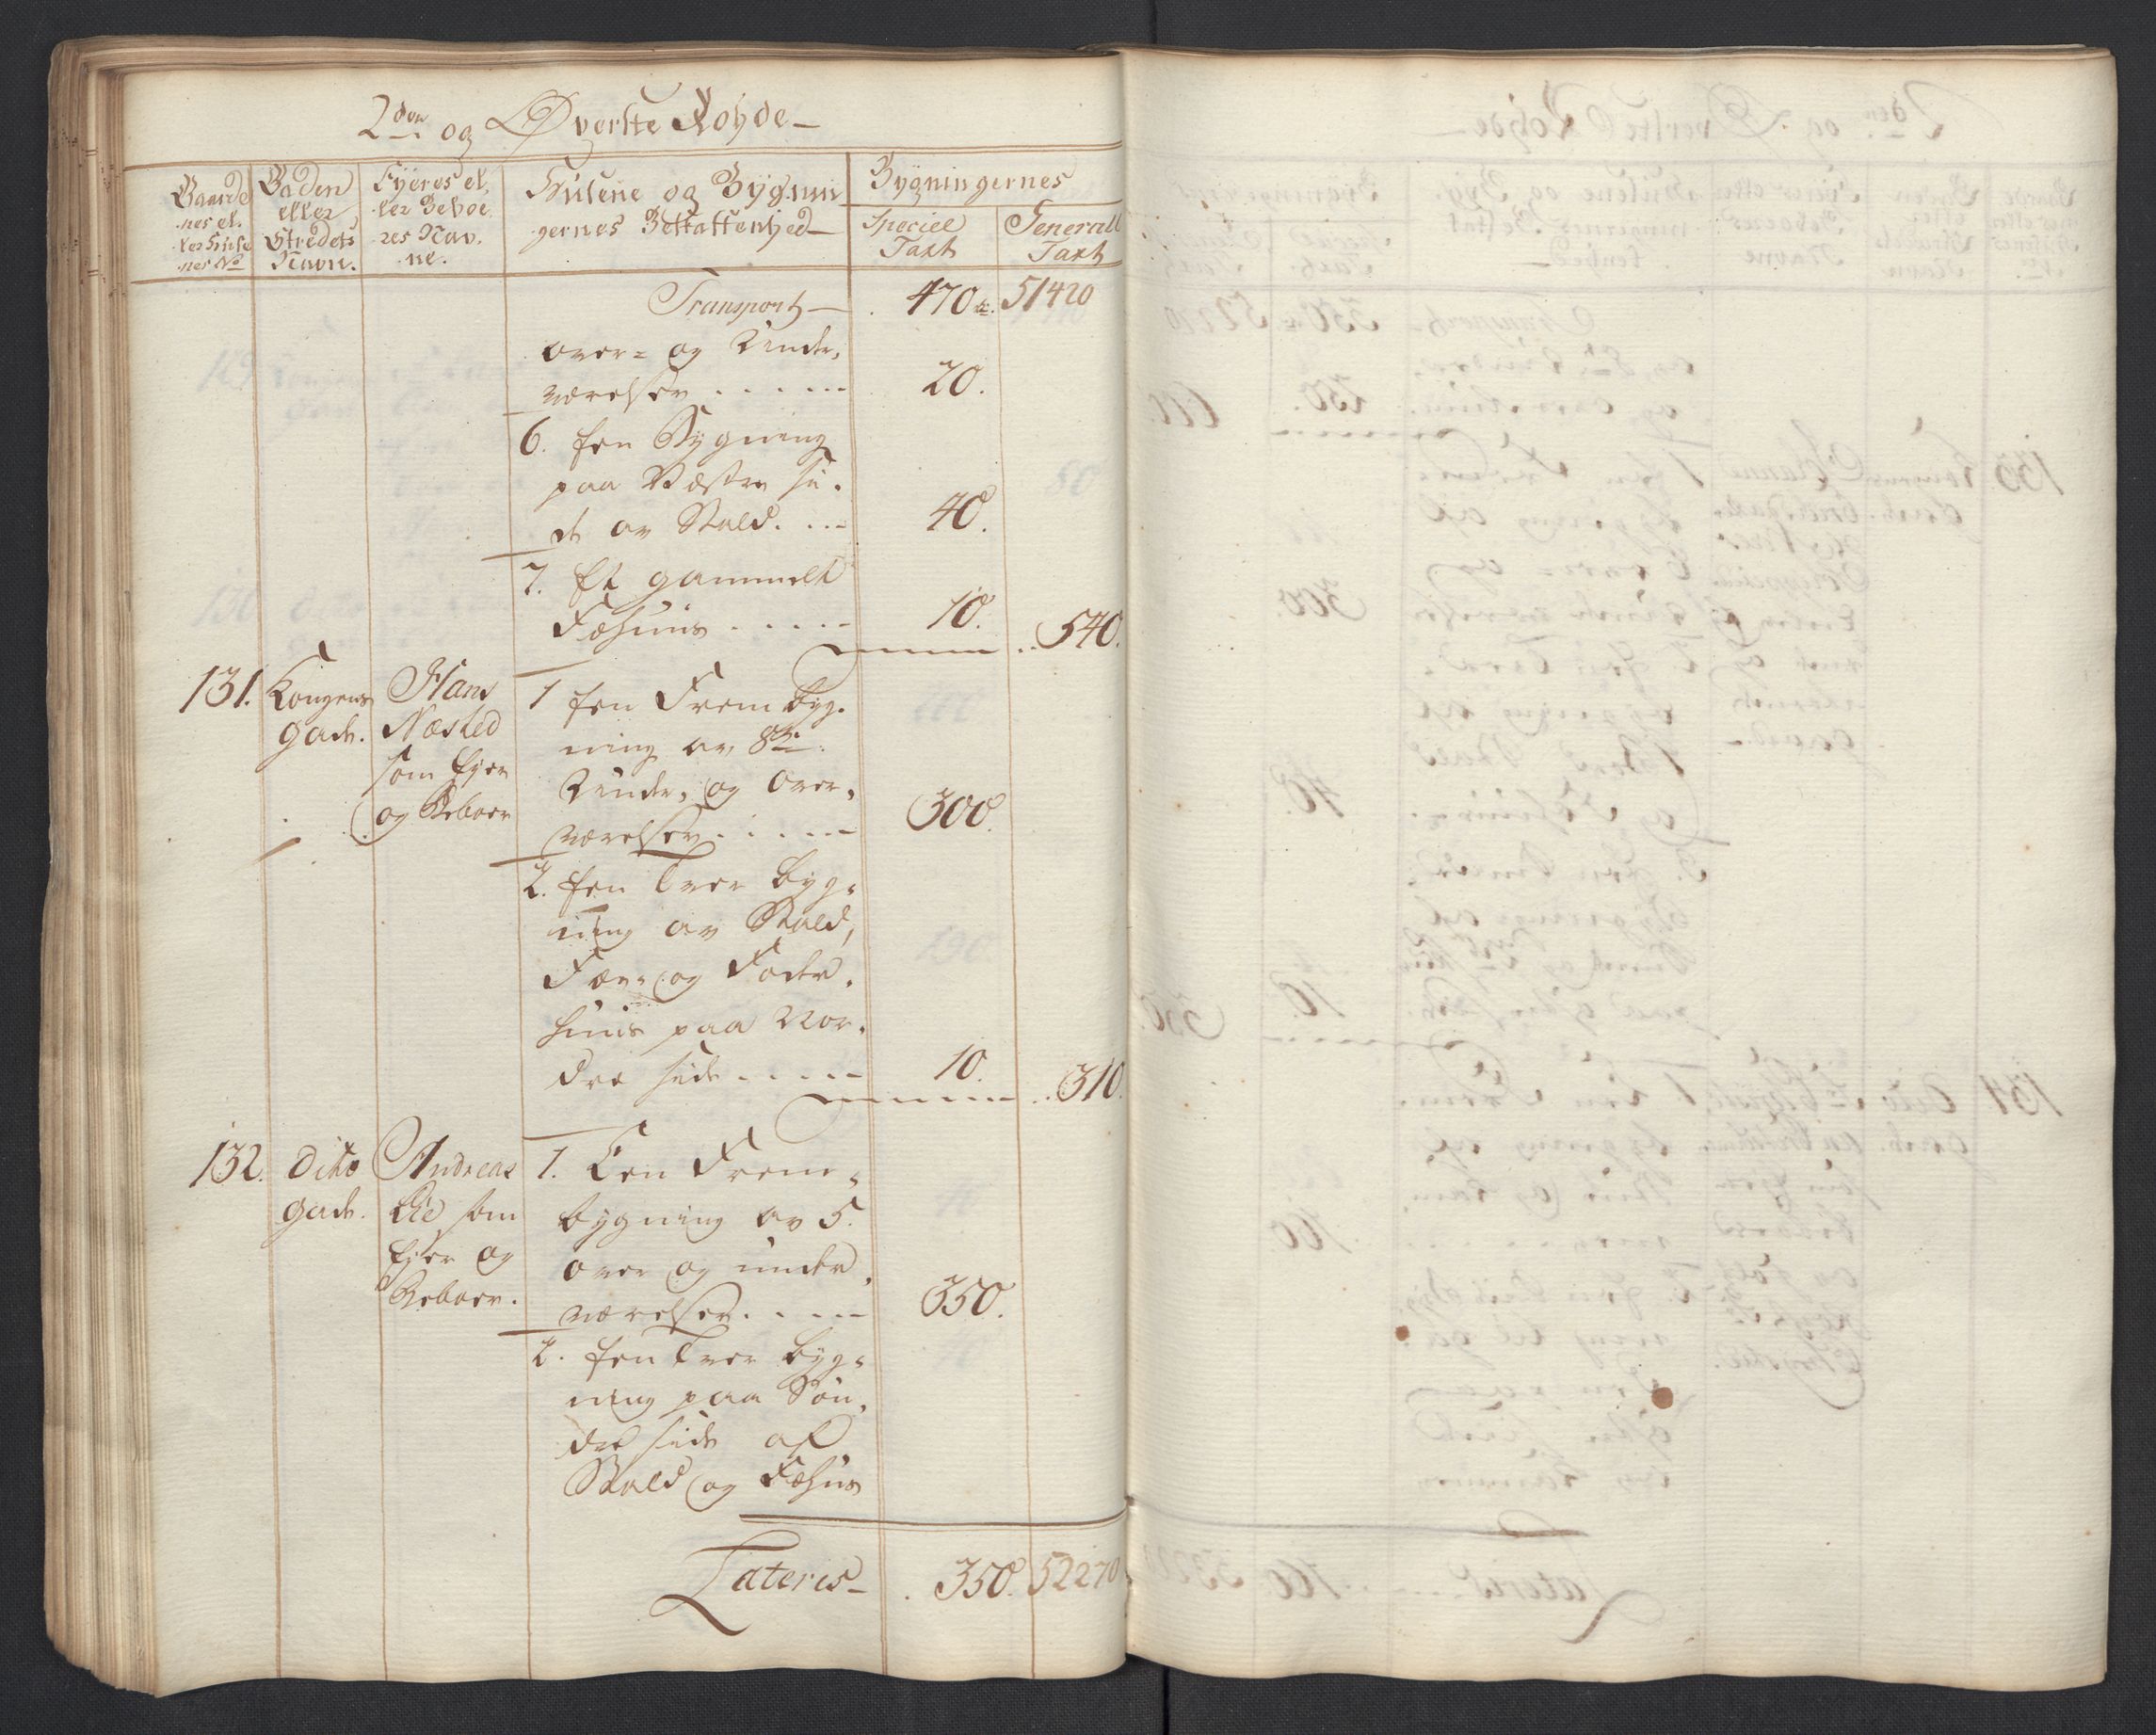 2den og Øverste Rohde
Gaarde
nes el.
ler Huse
nes No
Gaden
eller
Stredets
Navn.
Ejeres el.
ler Beboe
res Nav.
ne.
Husene og Bygnin
gernes Beskaffenhed
Bygningernes
Speciel
Taxt
Generall
Taxt
Transport 470 rd. 51420
over- og Under,
værelser . . . . . 20.
6. Een Bygning
paa Væstre si.
de av Stald. . . . 40.
7. Et gammelt
Fæhuus . . . . . 10. 540.
131. Kongens
gade.
Hans
Næsted
som Ejer
og Beboer
1 Een Frem byg.
ning av 8te
Under, og over,
værelser . . . . . 300.
2. Een Tver byg,
ning av Stald,
Fæe- og Foder.
huus paa Nor.
dre side . . . . . 10. 310.
132. dito
gade.
Andreas
Lie som
Ejer og
Beboer.
1. Een Frem,
bygning av 5.
over og under,
værelser . . . . 350.
2. Een Tver byg,
ning paa Søn,
dre side af
Stald og Fæhus
Lateris 350. 52270